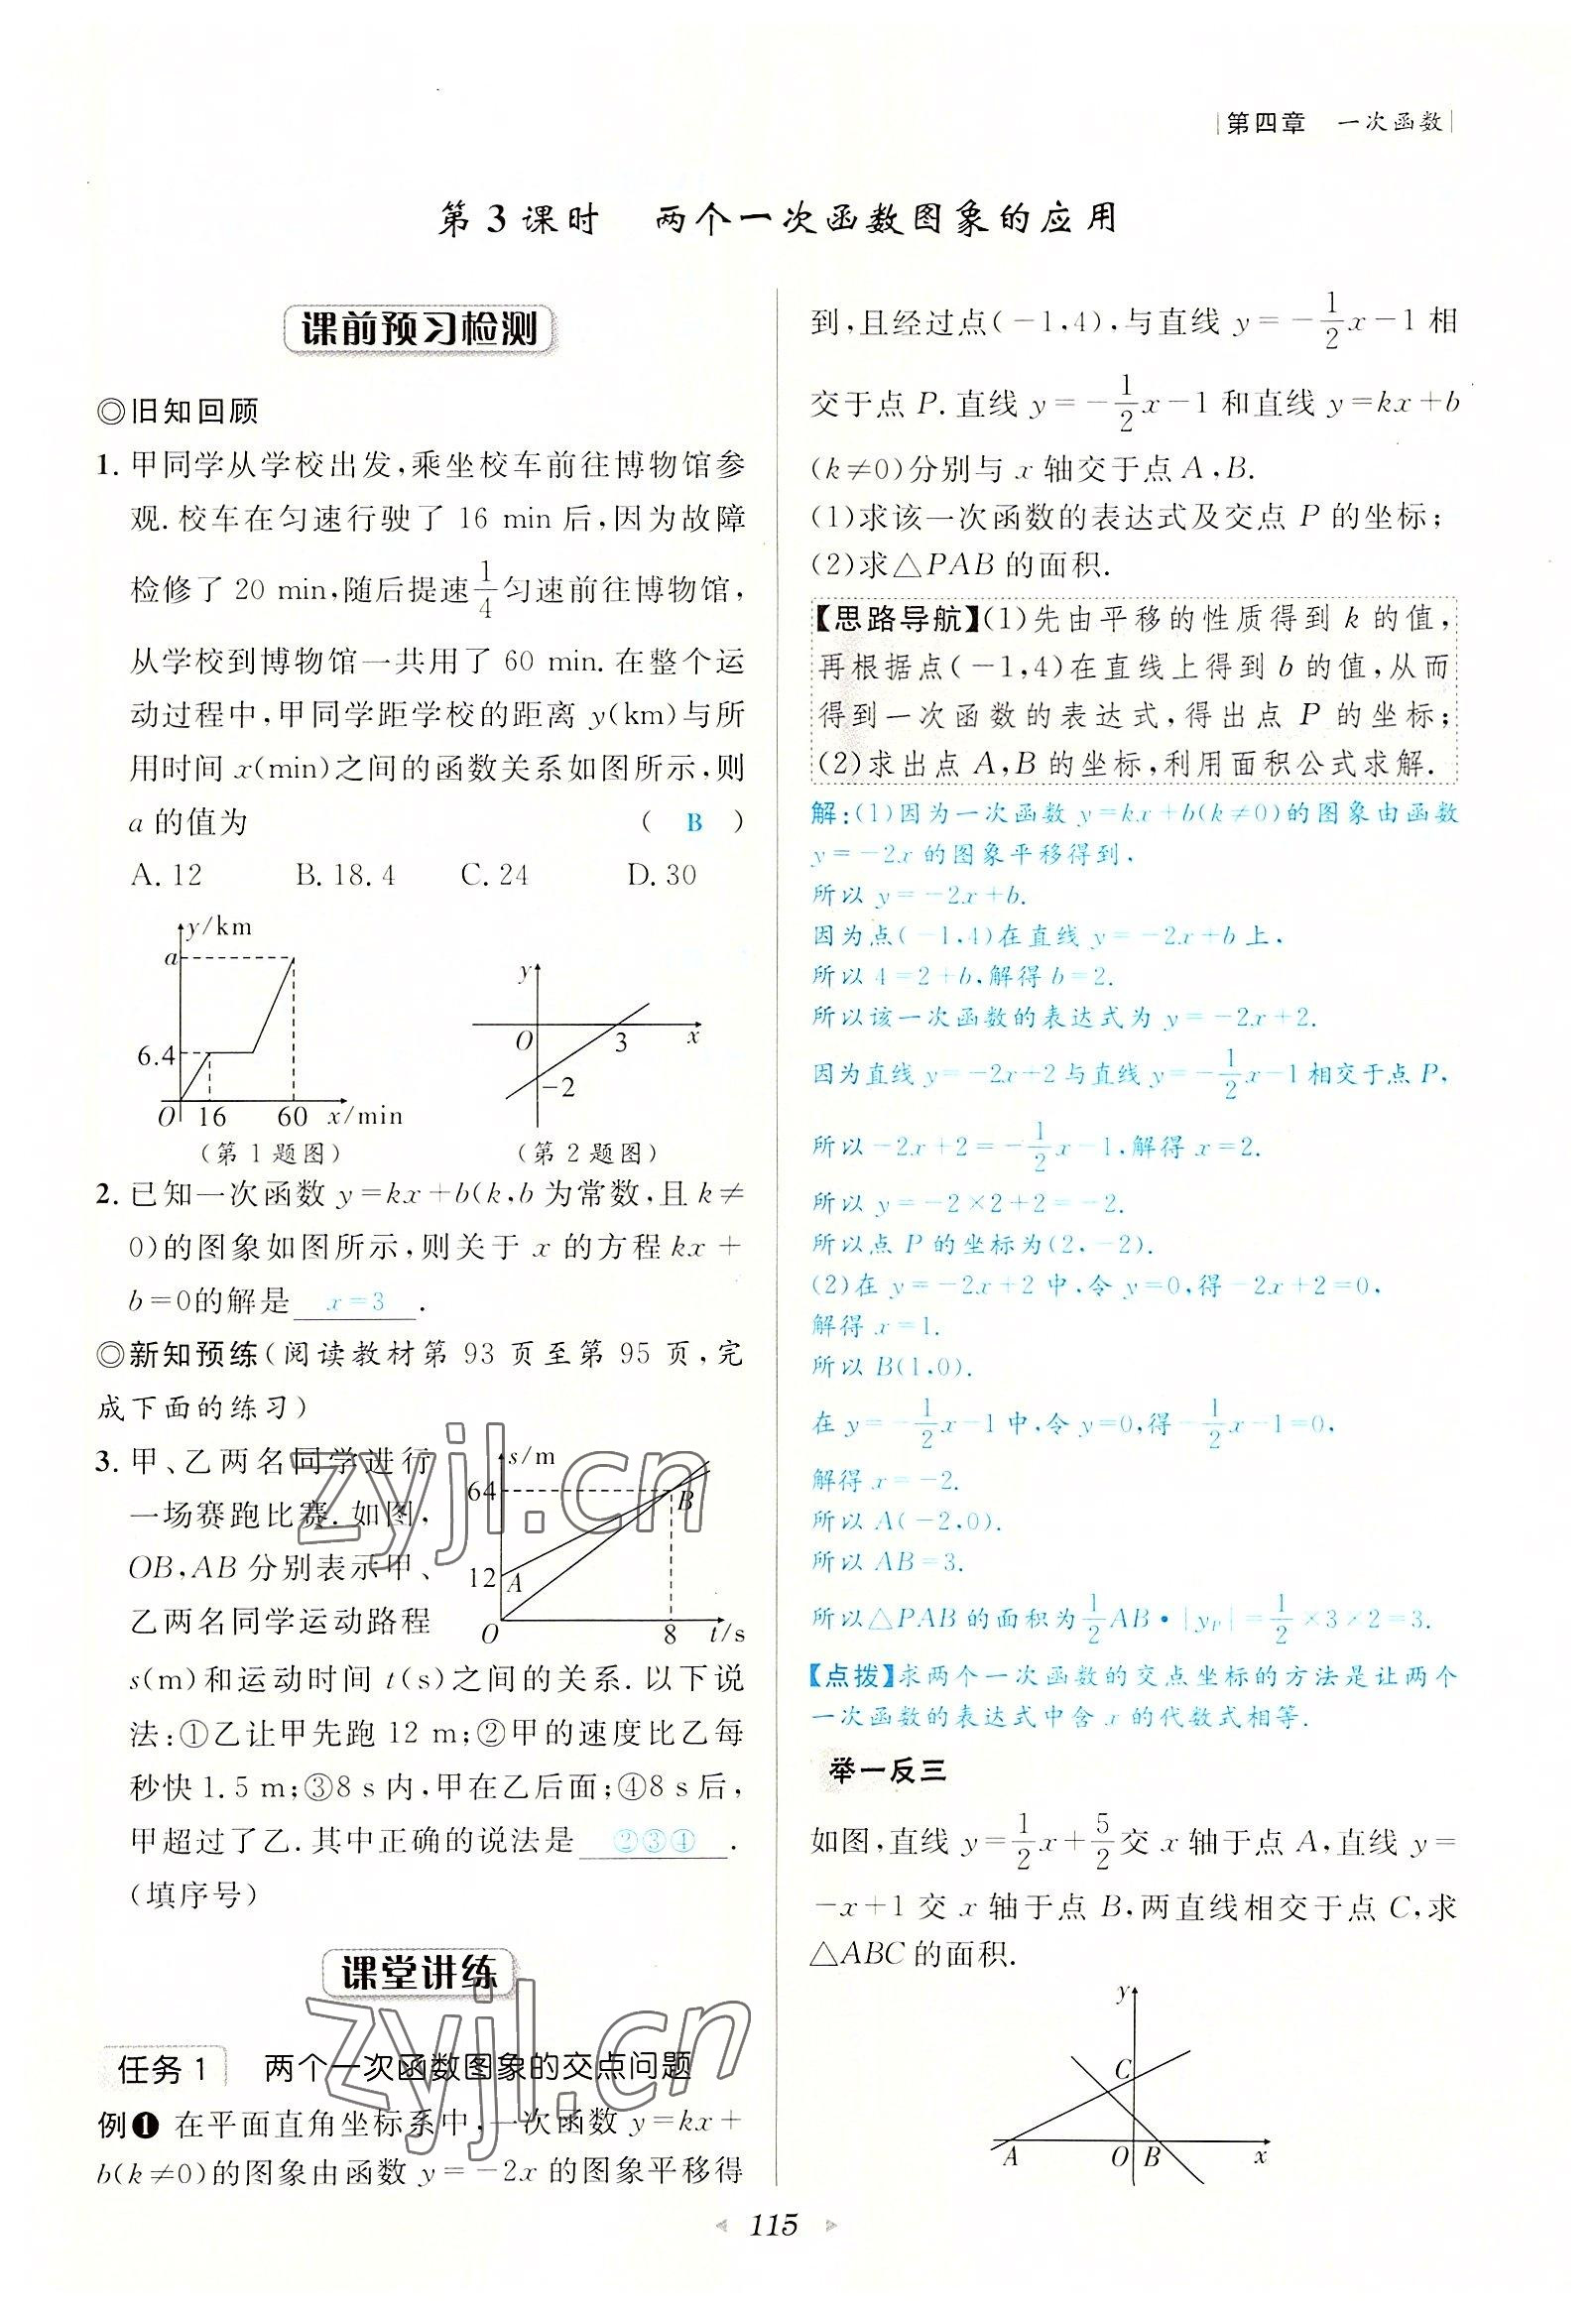 第四章 一次函数
第3课时 两个一次函数图象的应用
课前预习检测
◎旧知回顾
1. 甲同学从学校出发,乘坐校车前往博物馆参
观.校车在匀速行驶了 16 min 后,因为故障
检修了 20 min,随后提速1/4匀速前往博物馆,
从学校到博物馆一共用了 60 min.在整个运
动过程中,甲同学距学校的距离 y(km)与所
用时间 x(min)之间的函数关系如图所示,则
a 的值为 ( B )
A. 12 B. 18.4 C. 24 D. 30
y/km
a
6.4
O 16 60 x/min
(第1题图)
y
O 3 x
-2
(第2题图)
2. 已知一次函数 y=kx+b(k,b 为常数,且 k≠
0)的图象如图所示,则关于 x 的方程 kx+
b=0的解是 x=3 .
◎新知预练(阅读教材第 93 页至第 95 页,完
成下面的练习)
3. 甲、乙两名同学进行
一场赛跑比赛.如图,
OB,AB 分别表示甲、
乙两名同学运动路程
s/m
64
B
12 A
O 8 t/s
s(m)和运动时间 t(s)之间的关系.以下说
法:①乙让甲先跑 12 m;②甲的速度比乙每
秒快1.5 m;③8 s内,甲在乙后面;④8 s后,
甲超过了乙.其中正确的说法是 ②③④ .
(填序号)
课堂讲练
任务1 两个一次函数图象的交点问题
例❶ 在平面直角坐标系中,一次函数 y=kx+
b(k≠0)的图象由函数 y=-2x 的图象平移得
到,且经过点(-1,4),与直线 y=-1/2x-1 相
交于点 P.直线 y=-1/2x-1 和直线 y=kx+b
(k≠0)分别与 x 轴交于点A,B.
(1)求该一次函数的表达式及交点 P 的坐标;
(2)求△PAB的面积.
【思路导航】(1)先由平移的性质得到 k 的值,
再根据点(-1,4)在直线上得到 b 的值,从而
得到一次函数的表达式,得出点 P 的坐标;
(2)求出点 A,B 的坐标,利用面积公式求解.
解:(1)因为一次函数 y=kx+b(k≠0)的图象由函数
y=-2x 的图象平移得到,
所以 y=-2x+b.
因为点(-1,4)在直线 y=-2x+b 上,
所以 4=2+b,解得 b=2.
所以该一次函数的表达式为 y=-2x+2.
因为直线 y=-2x+2 与直线 y=-1/2x-1 相交于点 P,
所以 -2x+2=-1/2x-1,解得 x=2.
所以 y=-2×2+2=-2.
所以点 P 的坐标为(2,-2).
(2)在 y=-2x+2 中,令 y=0,得-2x+2=0,
解得 x=1.
所以 B(1,0).
在 y=-1/2x-1 中,令 y=0,得-1/2x-1=0,
解得 x=-2.
所以 A(-2,0).
所以 AB=3.
所以△PAB 的面积为1/2AB·|yP|=1/2×3×2=3.
【点拨】求两个一次函数的交点坐标的方法是让两个
一次函数的表达式中含 x 的代数式相等.
举一反三
如图,直线 y=1/2x+5/2交 x 轴于点 A,直线 y=
-x+1 交 x 轴于点 B,两直线相交于点 C,求
△ABC的面积.
y
C
A O B x
115
zyjl.cn
zyjl.cn